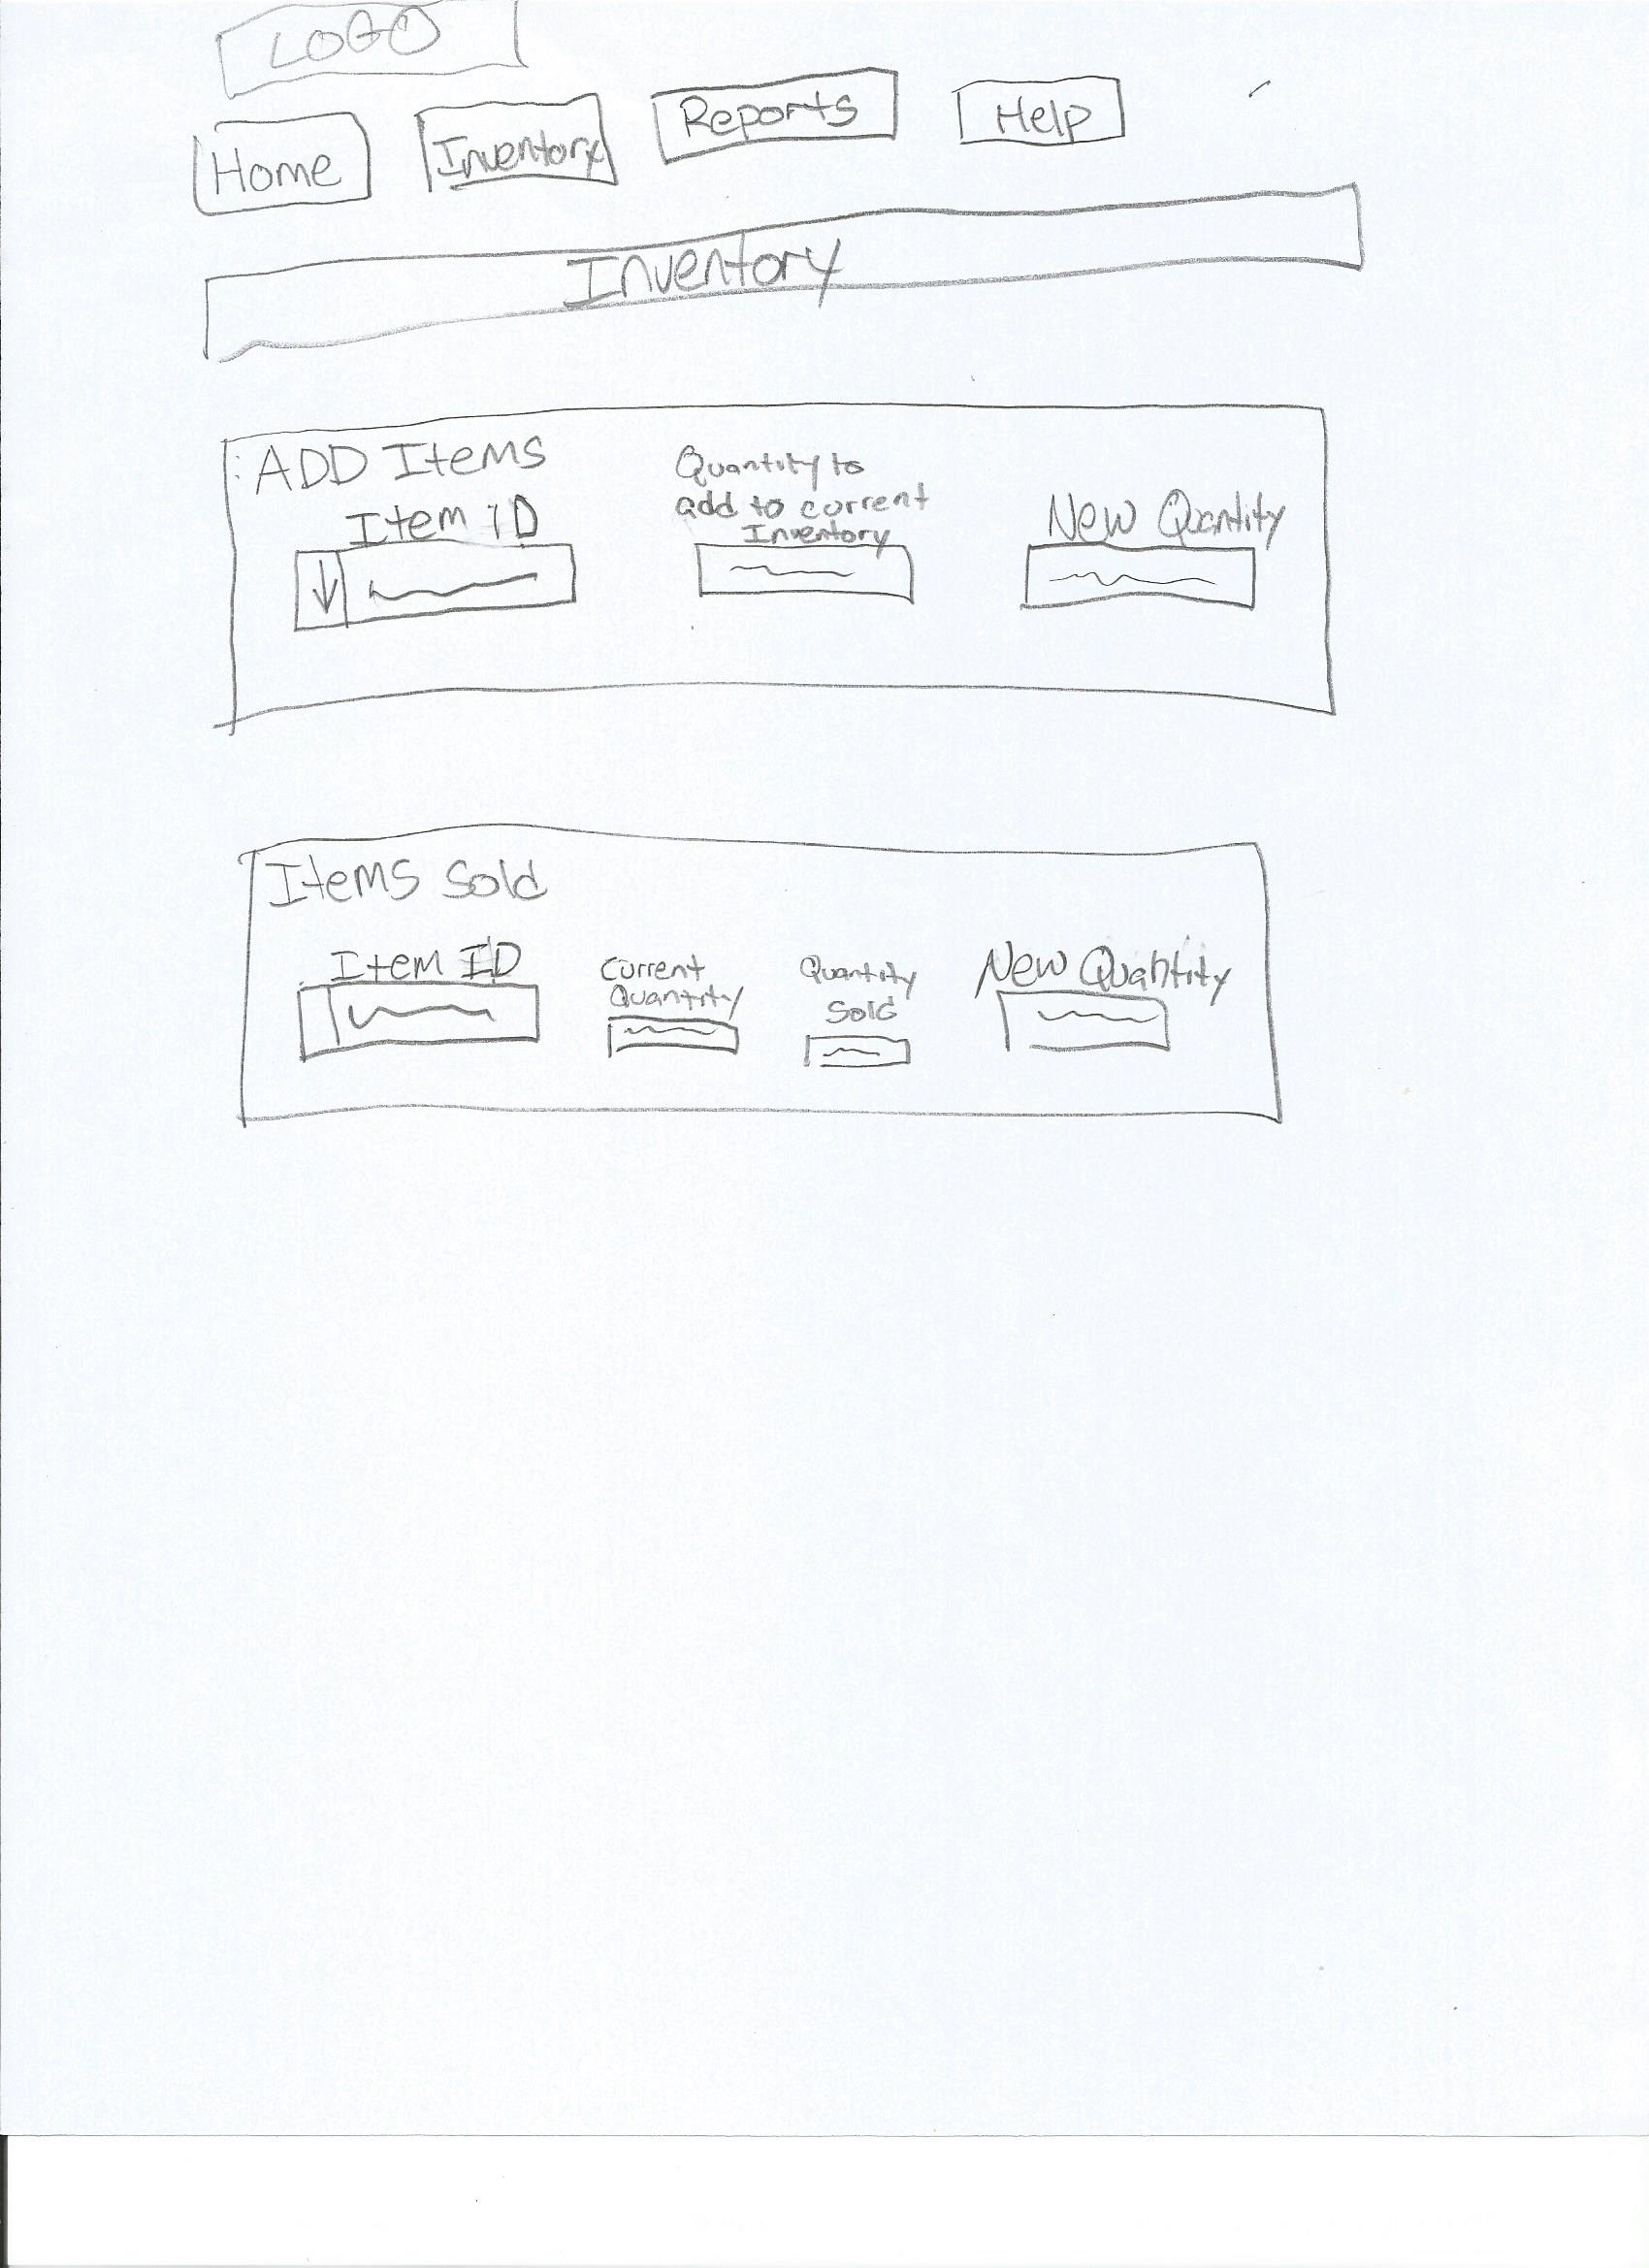 LOGO
Home Inventory Reports Help
Inventory
ADD Items
Item ID
Quantity to
add to current
Inventory
New Quantity
Items Sold
Item ID
Current
Quantity
Quantity
Sold
New Quantity